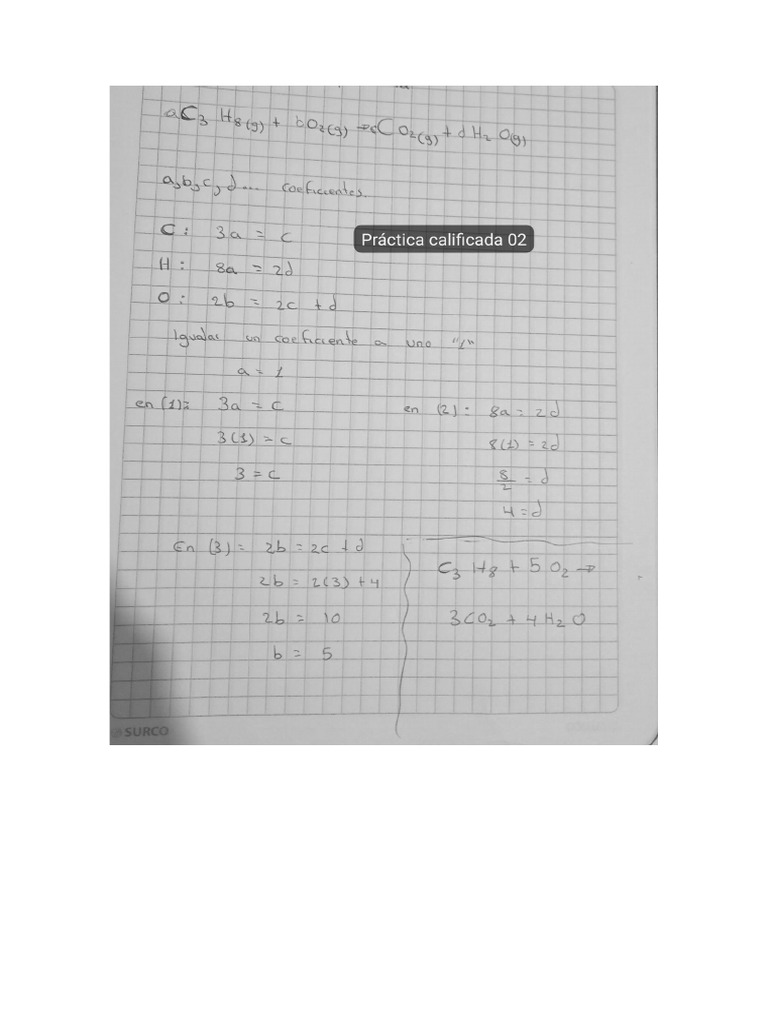 aC3 H8(g) + bO2(g) → cCO2(g) + d H2O(g)
a, b, c, d ... coeficientes.
C: 3a = c
Práctica calificada 02
H: 8a = 2d
O: 2b = 2c + d
Igualas un coeficiente a uno "1"
a = 1
en (1): 3a = c
3(1) = c
3 = c
en (2): 8a = 2d
8(1) = 2d
8/2 = d
4 = d
En (3) = 2b = 2c + d
2b = 2(3) + 4
2b = 10
b = 5
C3 H8 + 5 O2 →
3CO2 + 4H2O
SURCO